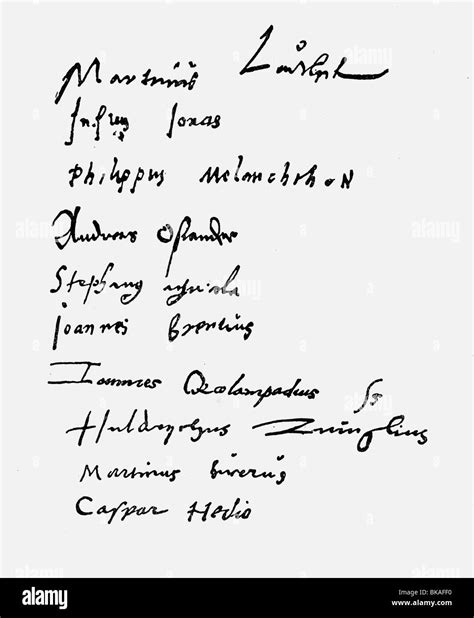 Martinus Luther
Justus Jonas
Philippus Melanchthon
Andreas Osiander
Stephanus Agricola
Joannes Brentius
Ioannes Oecolampadius Ss
Huldrychus Zuinglius
Martinus Bucerus
Caspar Hedio
alamy
Image ID: BKAFF0
www.alamy.com